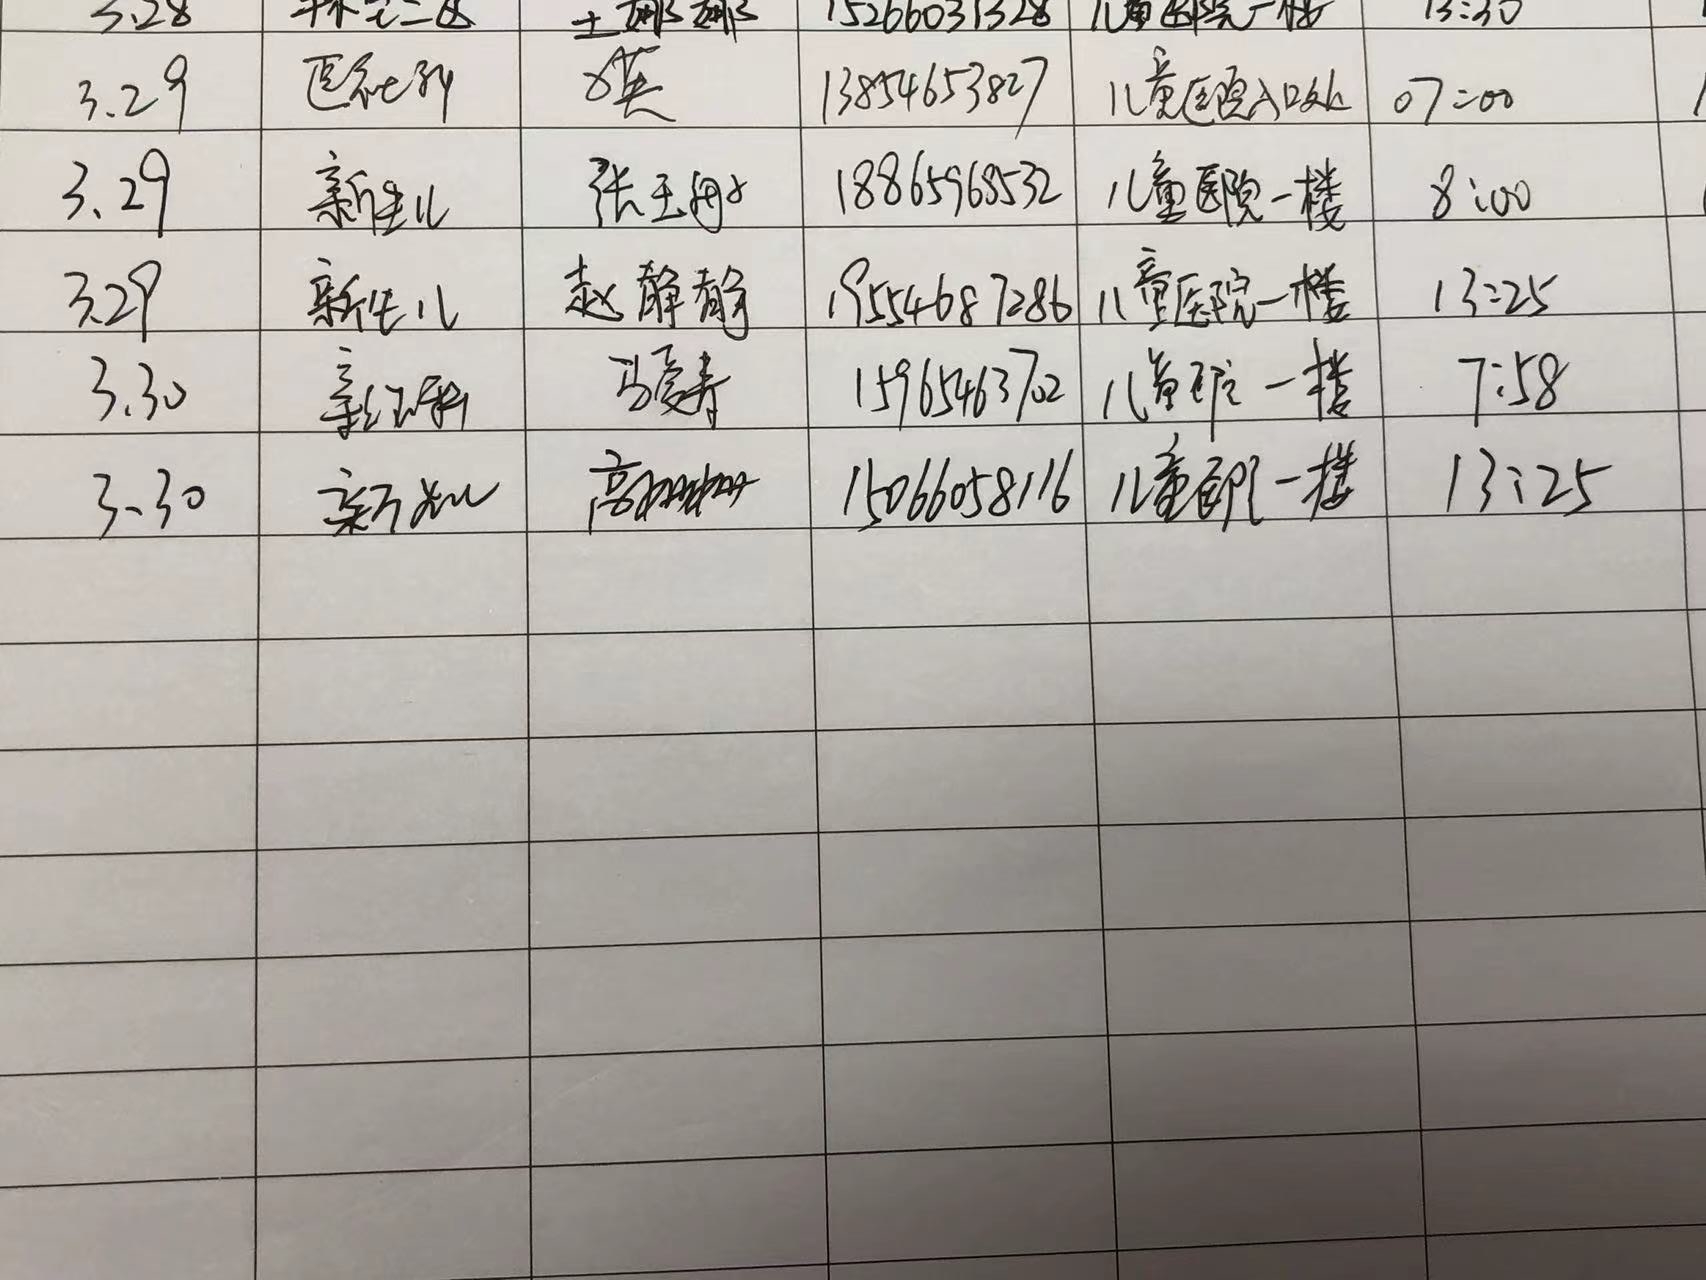 3.28 王娜娜 15266031328 儿童医院一楼 13:30
3.29 英 13854653827 儿童医院入口处 07:00
3.29 新生儿 张玉 18865968532 儿童医院一楼 8:00
3.29 新生儿 赵静静 19554687286 儿童医院一楼 13:25
3.30 马爱寿 15965463702 儿童医院一楼 7:58
3.30 新生儿 高 15066058116 儿童医院一楼 13:25